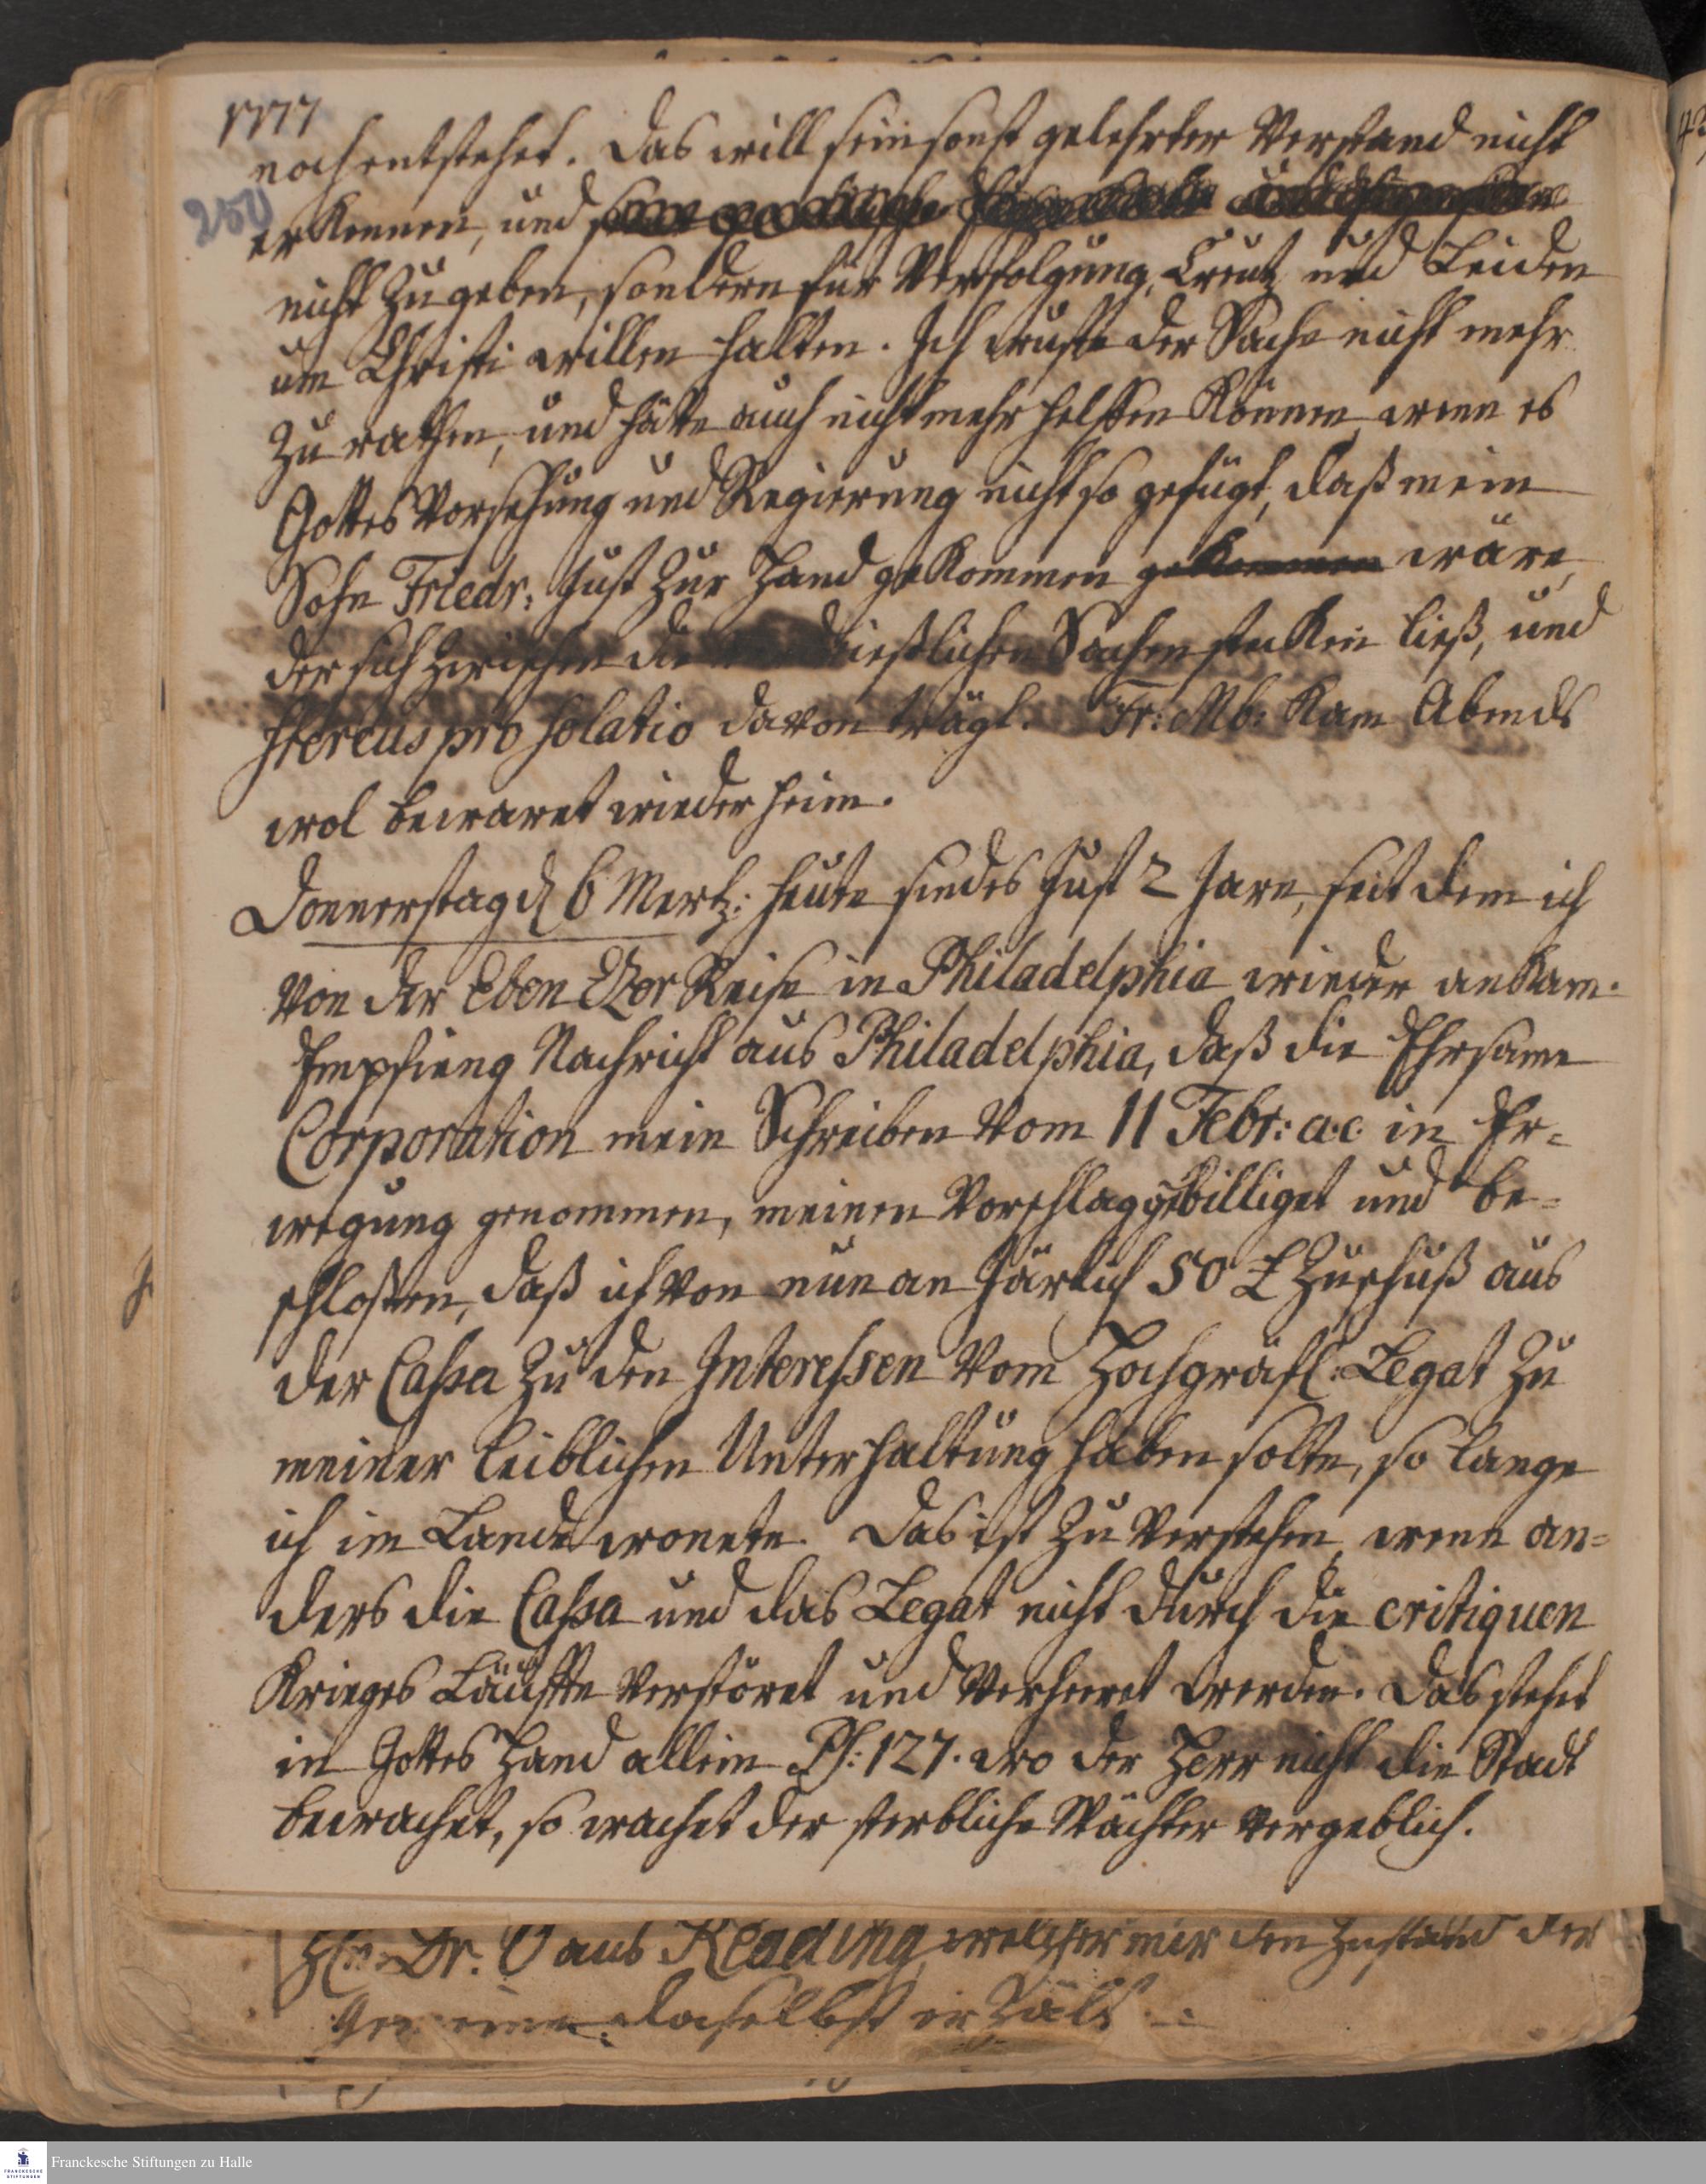 1777
noch entstehet. Das will sein sonst gelehrter Verstand nicht
250
erkennen, und
nicht zugeben, sondern für Verfolgung, Creutz und Leiden
um Christi willen halten. Ich wuste der Sache nicht mehr
zu rathen, und hätte auch nicht mehr helffen können, wenn es
Gottes Vorsehung und Regierung nicht so gefügt, daß mein
Sohn Friedr: just zur Hand gekommen gekommen wäre,
der sich zwischen die verdrießlichen Sachen stecken ließ, und
stercus pro solatio davon trägt. Fr: Mb: kam Abends
wol bewaret wieder heim.
Donnerstag d 6 Mertz: heute sind es just 2 Jare, seit dem ich
von der Eben Ezer Reise in Philadelphia wieder ankam.
Empfieng Nachricht aus Philadelphia, daß die Ehrsame
Corporation mein Schreiben vom 11 Febr: a.c. in Er=
wegung genommen, meinen Vorschlag gebilliget und be=
schloßen, daß ich von nun an järlich 50 £ Zuschuß aus
der Cassa zu den Interessen vom Hochgräfl: Legat zu
meiner leiblichen Unterhaltung haben solte, so lange
ich im Lande wonete. Das ist zu verstehen, wenn an=
ders die Cassa und das Legat nicht durch die critiquen
Krieges Läuffte verstöret und verheeret werden. Das stehet
in Gottes Hand allein Ps: 127. wo der Herr nicht die Stadt
bewachet, so wachet der sterbliche Wächter vergeblich.
Dr. aus Reading, welcher mir den Zustand der
daselbst erzält
FRANCKESCHE
STIFTUNGEN
Franckesche Stiftungen zu Halle